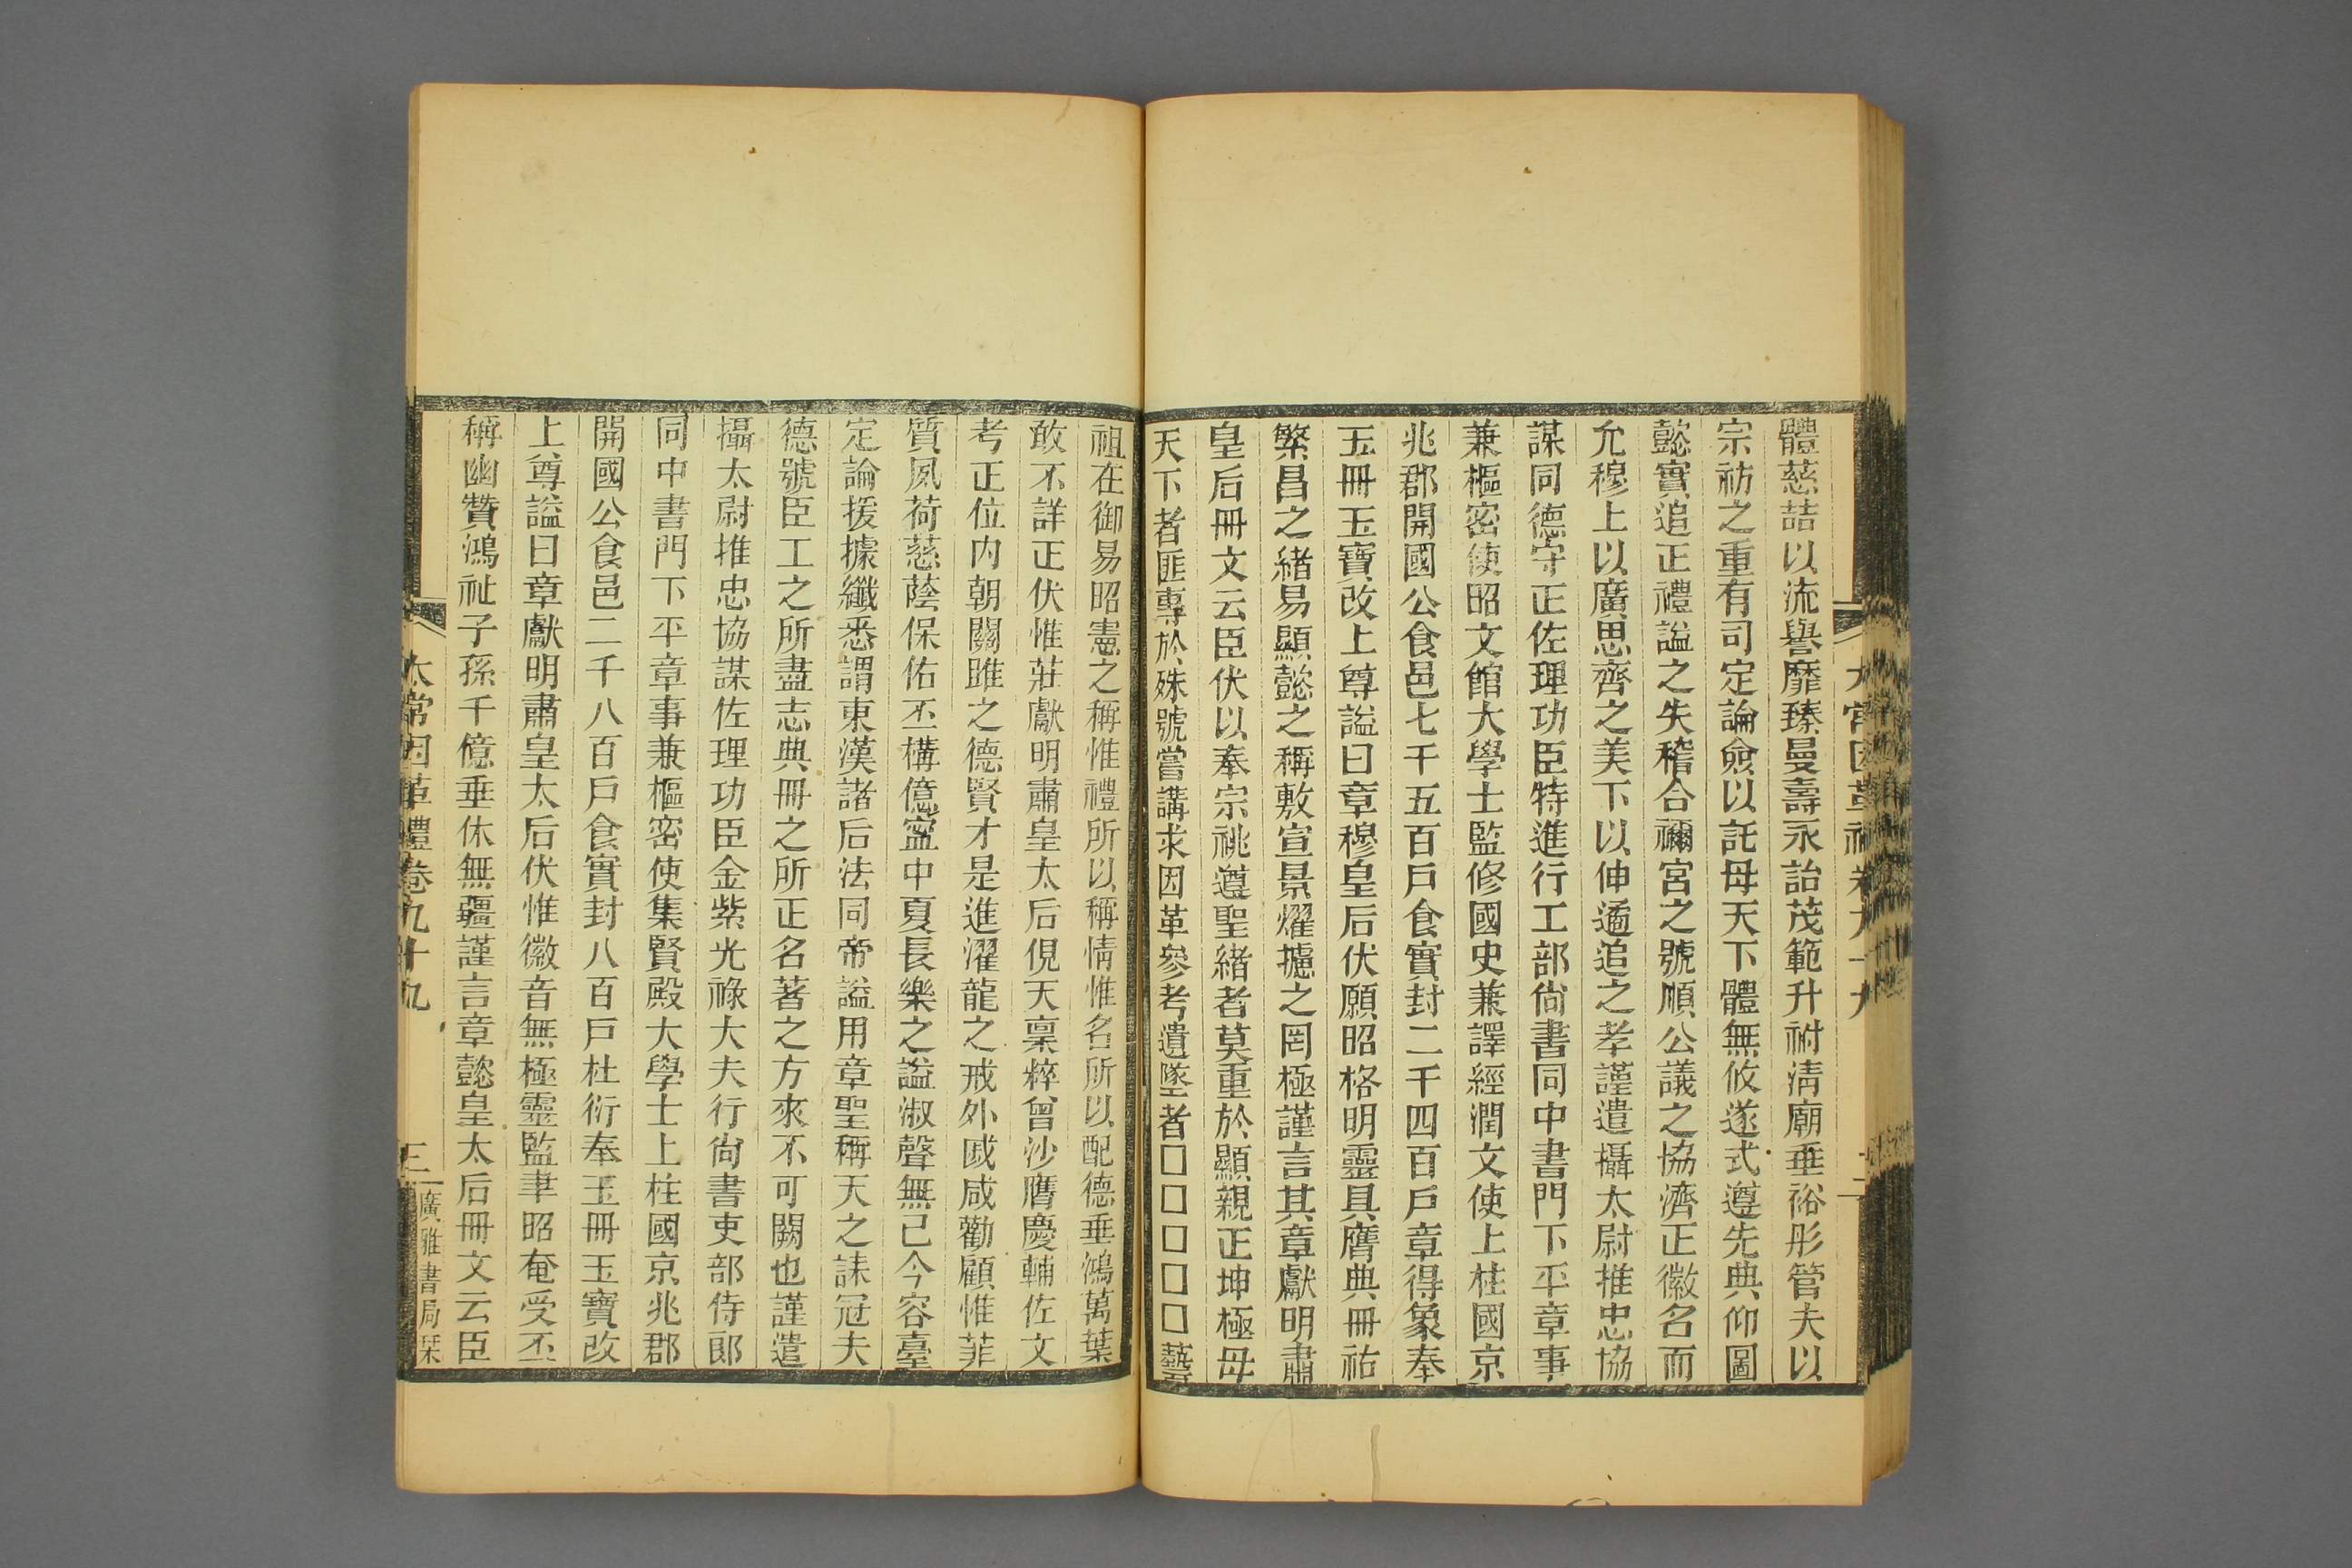 體慈喆以流譽靡臻曼壽永詒茂範升祔淸廟垂裕彤管夫以
宗祊之重有司定論僉以託母天下體無攸遂式遵先典仰圖
懿實追正禮諡之失稽合禰宮之號順公議之協濟正徽名而
允穆上以廣思齊之美下以伸遹追之孝謹遣攝太尉推忠協
謀同德守正佐理功臣特進行工部尙書同中書門下平章事
兼樞密使昭文館大學士監修國史兼譯經潤文使上柱國京
兆郡開國公食邑七千五百戶食實封二千四百戶章得象奉
玉冊玉寶改上尊諡曰章穆皇后伏願昭格明靈具膺典冊祐
繁昌之緒易顯懿之稱敷宣景燿攄之罔極謹言其章獻明肅
皇后冊文云臣伏以奉宗祧遵聖緒者莫重於顯親正坤極母
天下者匪專於殊號嘗講求因革參考遺墜者□□□□□藝
祖在御易昭憲之稱惟禮所以稱情惟名所以配德垂鴻萬葉
敢不詳正伏惟莊獻明肅皇太后俔天稟粹曾沙膺慶輔佐文
考正位內朝關雎之德賢才是進濯龍之戒外戚咸勸顧惟菲
質夙荷慈蔭保佑丕構億寧中夏長樂之諡淑聲無已今容臺
定論援據纖悉謂東漢諸后法同帝諡用章聖稱天之誄冠夫
德號臣工之所盡志典冊之所正名著之方來不可闕也謹遣
攝太尉推忠協謀佐理功臣金紫光祿大夫行尙書吏部侍郎
同中書門下平章事兼樞密使集賢殿大學士上柱國京兆郡
開國公食邑二千八百戶食實封八百戶杜衍奉玉冊玉寶改
上尊諡曰章獻明肅皇太后伏惟徽音無極靈監聿昭奄受丕
稱幽贊鴻祉子孫千億垂休無疆謹言章懿皇太后冊文云臣
太常因革禮卷九十九
三
廣雅書局栞